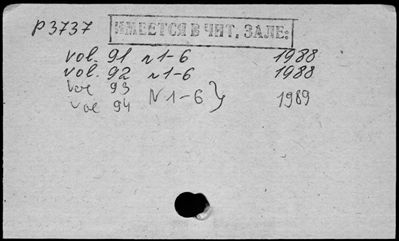 P3737
ИМЕЕТСЯ В ЧИТ. ЗАЛЕ:
vol. 91 N 1-6 1988
vol. 92 N 1-6 1988
vol 93
N 1-6 } 1989
vol 94